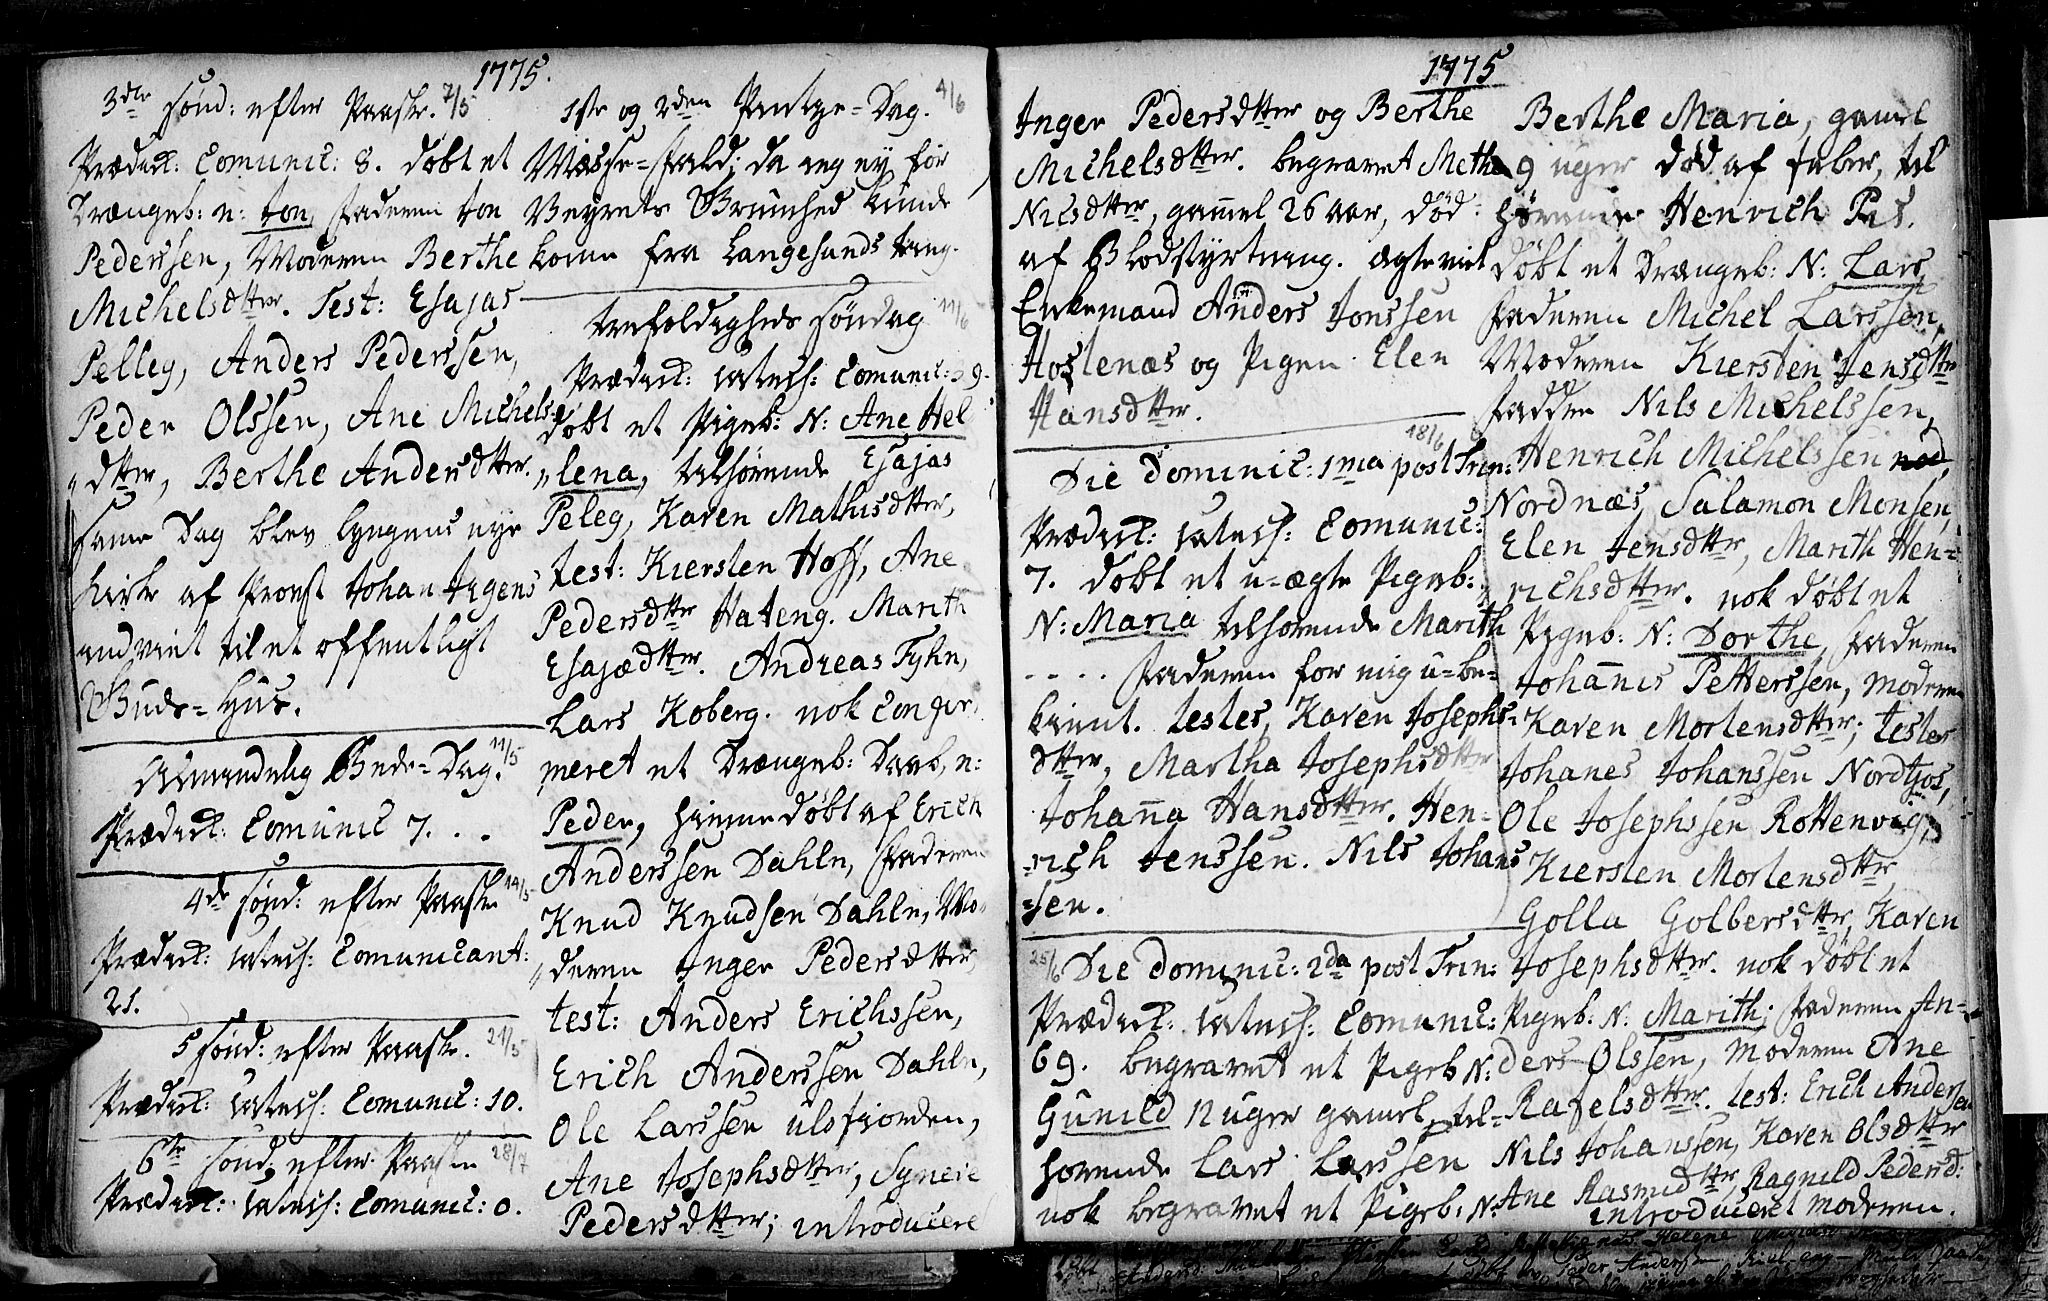 1775.
3die Sønd: efter Paaske. 7/5
Prædict: Comunic: 8. døbt et
Drængeb: n: Jon, Faderen Jon
Pederssen, Moderen Berthe
Michelsdtter. Test: Esajas
Pelleg, Anders Pederssen,
Peder Olssen, Ane Michels
dtter, Berthe Andersdtter.
Same Dag blev Lyngens nye
Kirke af Provst Johan Irgens
indviet til et offentligt
Guds-Huus.
Almindelig Bede-Dag. 11/5
Prædict: Comunic 7.
4de Sønd: efter Paaske 14/5
Prædict: Catech: Comunicant:
21.
5 Sønd: efter Paaske. 21/5
Prædict: Catech: Comunic: 10.
6te Sønd: efter Paaske 28/7
Prædict: Catech: Comunic: 0.
1ste og 2den Pintze-Dag. 4/6
Messe-Fald; da ieg ey for
Veyrets Skyld kunde
komme fra Langesunds
Trefoldigheds Søndag 11/6
Prædict: Catech: Comunic: 39.
døbt et Pigeb: N: Ane Hel
lena, tilhørende Esajas
Peleg, Karen Mathisdtter,
test: Kiersten Hoff, Ane
Pedersdtter Hateng. Marith
Esajædtter. Andreas Fyhn,
Lars Koberg. nok confir,
meret et Drængeb: Daab, n:
Peder, hiemmedøbt af Erich
Anderssen Dahln, Faderen
Knud Knudsen Dahln, Mo,
deren Inger Pedersdtter,
test: Anders Erichssen,
Erich Anderssen Dahln,
Ole Larssen ulsfiorden,
Ane Josephsdtter, Syneve
Pedersdtter; introducere
1775
Inger Pedersdtter og Berthe
Michelsdtter. begravet Methe
Nilsdtter, gamel 26 aar, død
af Blodstyrtning. Ægteviet
Enkemand Anders Jonssen
Hoslenæs og Pigen Elen
Hansdtter.
18/6
Die Dominic: 1ma post Trin:
Prædict: Catech: Comunic:
7. døbt et u-ægte Pigeb:
N: Maria tilhørende Marith
. . . . Faderen for mig u-be-
kient. testes, Karen Josephs-
dtter, Martha Josephsdtter
Johanna Hansdtter. Hen-
rich Jenssen. Nils Johans
sen.
25/6 Die Dominic: 2da post Trin:
Prædict: Catech: Comunic:
69. begravet et Pigeb N:
Gunild 12 uger gamel, til-
hørende Lars Larssen
nok begravet et Pigeb: N:
Berthe Maria, gamel
9 uger død af feber, til
hørende Henrich
døbt et Drængeb: N: Lars,
Faderen Michel Larssen,
Moderen Kiersten Jensdtter
Fadder Nils Michelssen,
Henrich Michelssen nod,
Nordnæs, Salamon Monsen,
Elen Jensdtter, Marith Hen-
richsdtter. nok døbt et
Pigeb: N: Dorthe, Faderen
Johannes Petterssen, Moderen
Karen Mortensdtter; testes
Johanes Johanssen Nordkjos,
Ole Josephssen Rottenvig,
Kiersten Mortensdtter
Golla Golbersdtter, Karen
Josephsdtter. nok døbt et
Pigeb: N: Marith; Faderen An-
ders Olssen, Moderen Ane
Rafelsdtter. test: Erich Anderssen
Nils Johanssen, Karen Olsdtter
Ane Rasmusdtter, Ragnild Pedersd:
introduceret Moderen.